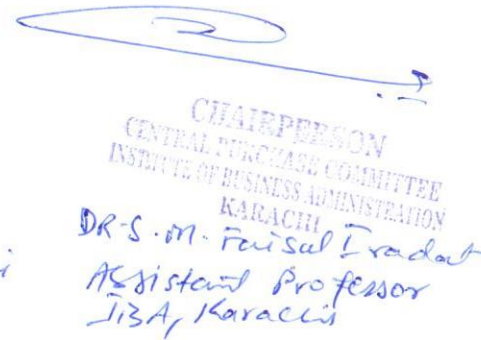 CHAIRPERSON
CENTRAL PURCHASE COMMITTEE
INSTITUTE OF BUSINESS ADMINISTRATION
KARACHI
DR-S. M. Faisal Iradat
i Assistant Professor
IBA, Karachi